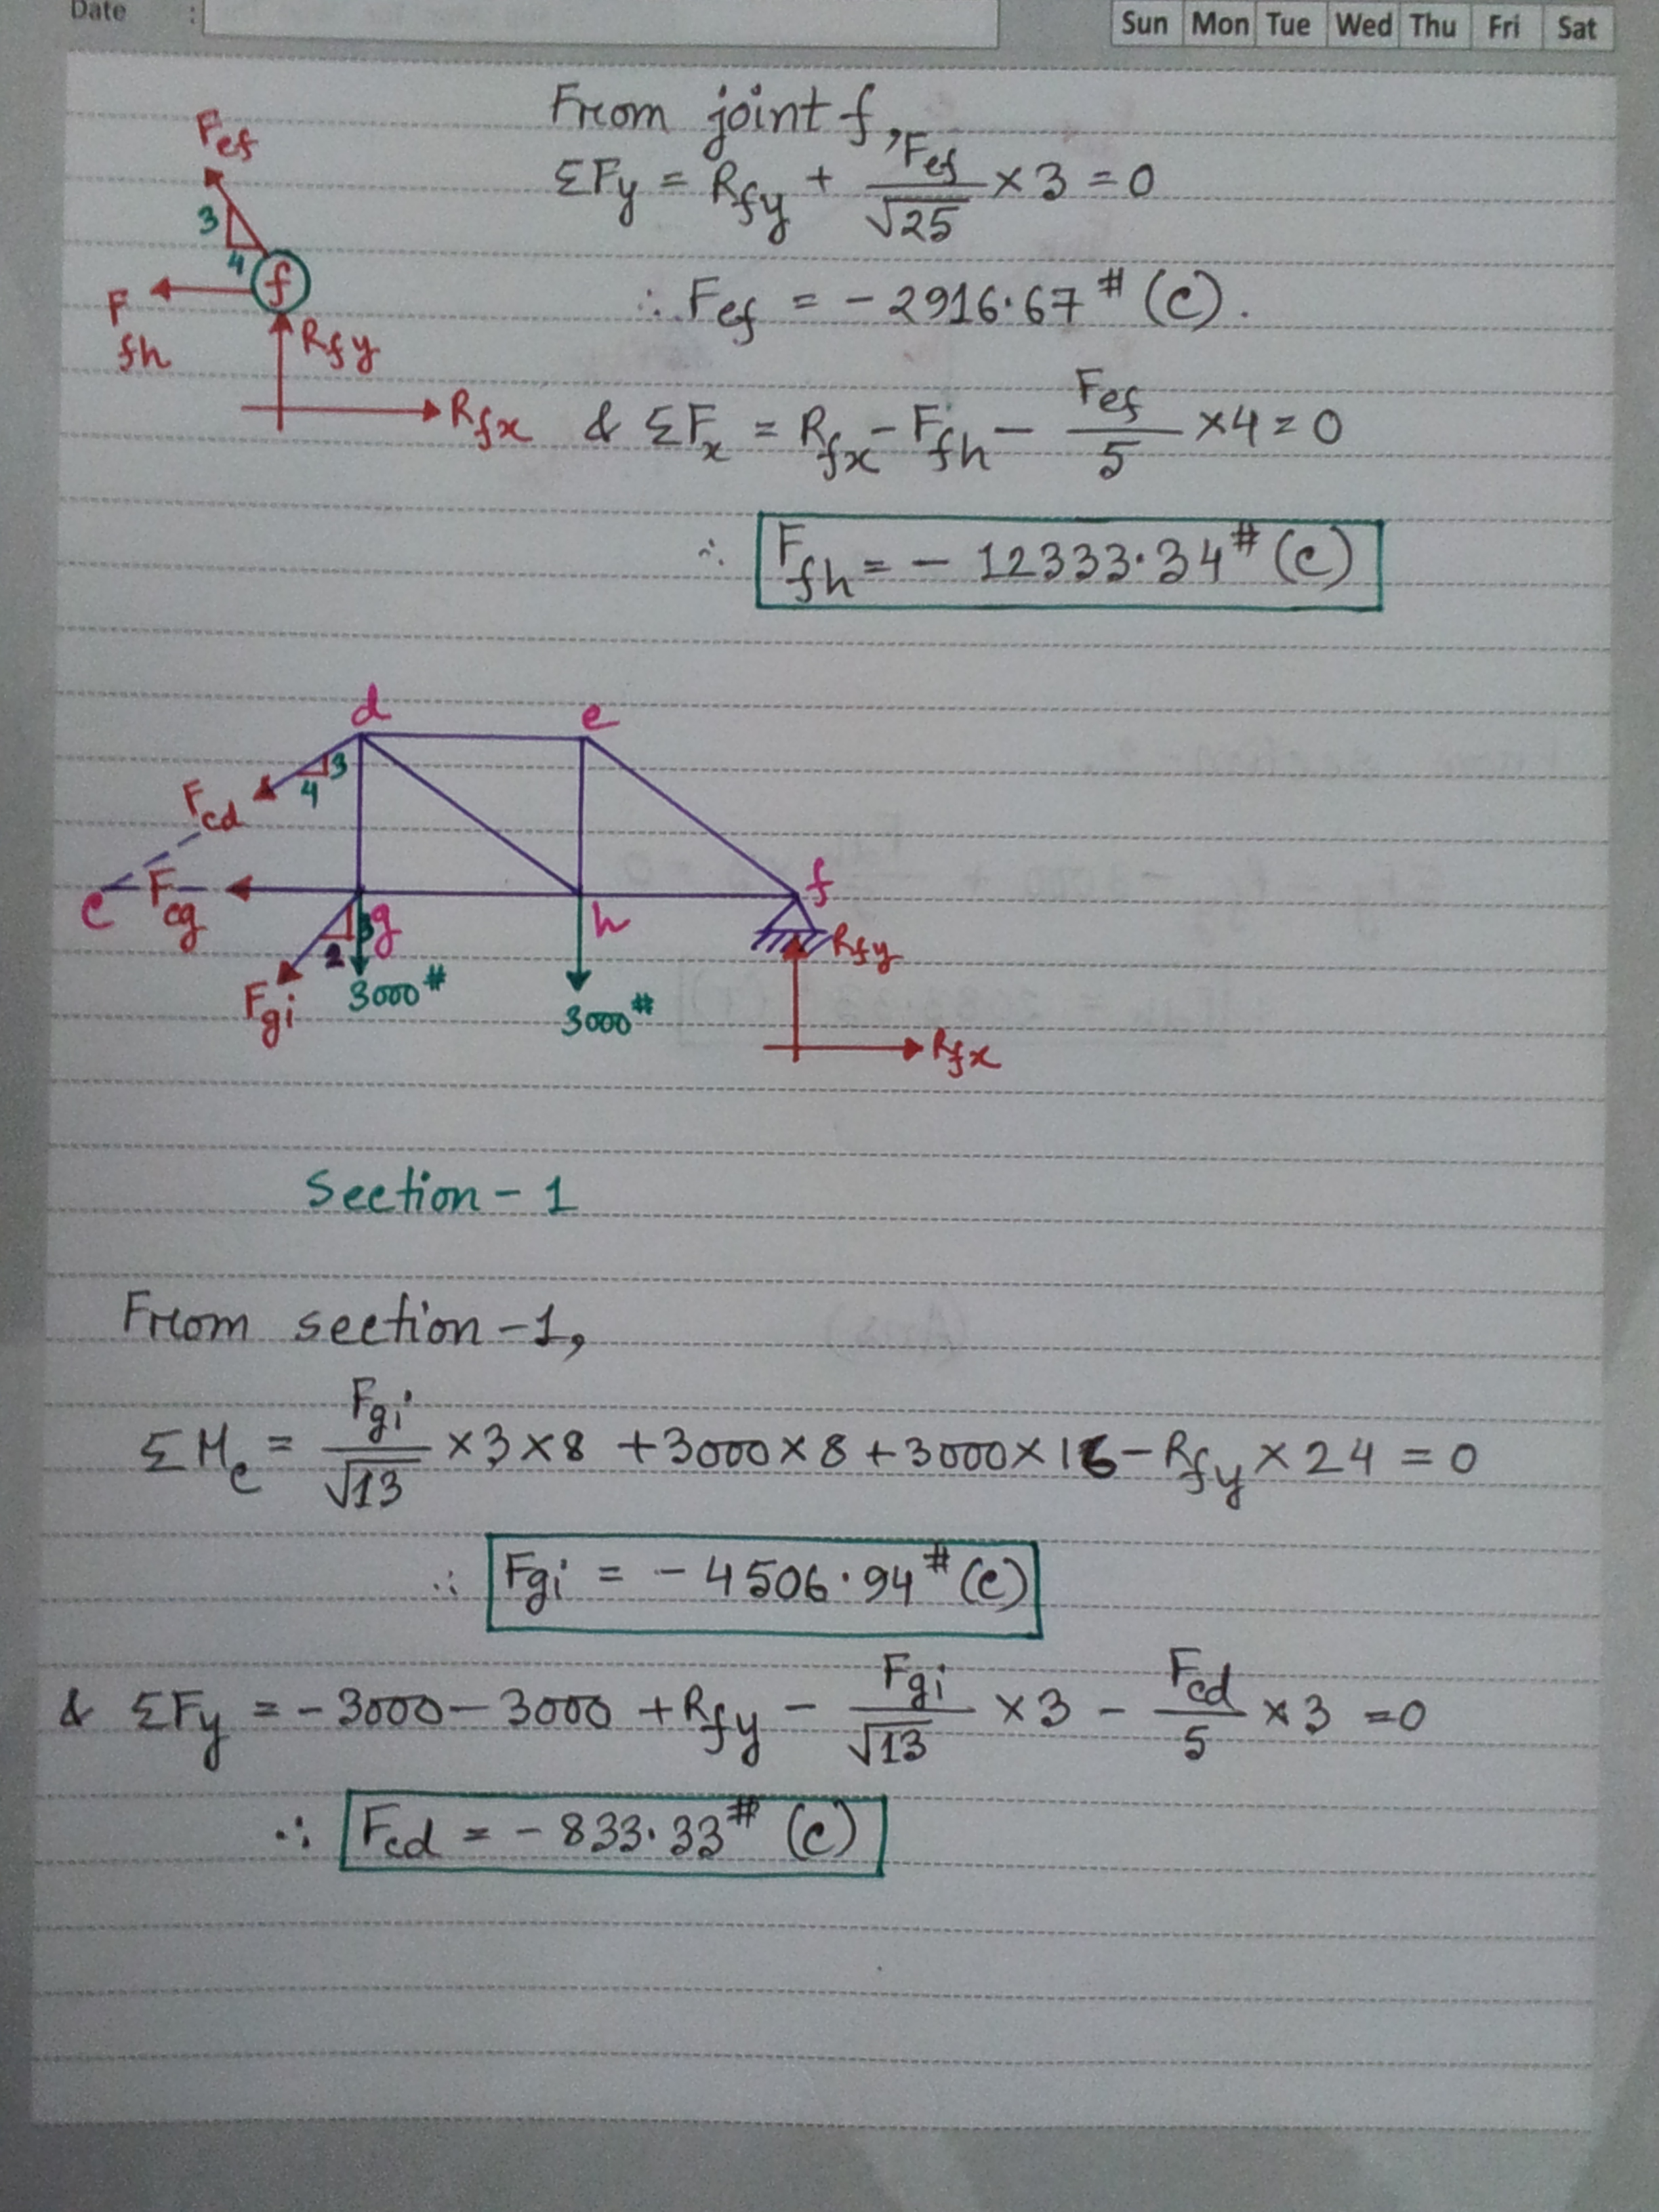 Date :
Sun Mon Tue Wed Thu Fri Sat
From joint f,
Fef
3
4
f
F fh
Rfy
Rfx
ΣFy = Rfy + Fef/√25 × 3 = 0
∴ Fef = - 2916.67# (C).
& ΣFx = Rfx - Ffh - Fef/5 × 4 = 0
∴ Ffh = - 12333.34# (C)
d
e
3
4
Fcd
c
Fcg
g
h
f
3
2
Fgi
3000#
3000#
Rfy
Rfx
Section - 1
From section -1,
ΣMc = Fgi/√13 × 3 × 8 + 3000 × 8 + 3000 × 16 - Rfy × 24 = 0
∴ Fgi = - 4506.94# (C)
& ΣFy = - 3000 - 3000 + Rfy - Fgi/√13 × 3 - Fcd/5 × 3 = 0
∴ Fcd = - 833.33# (C)